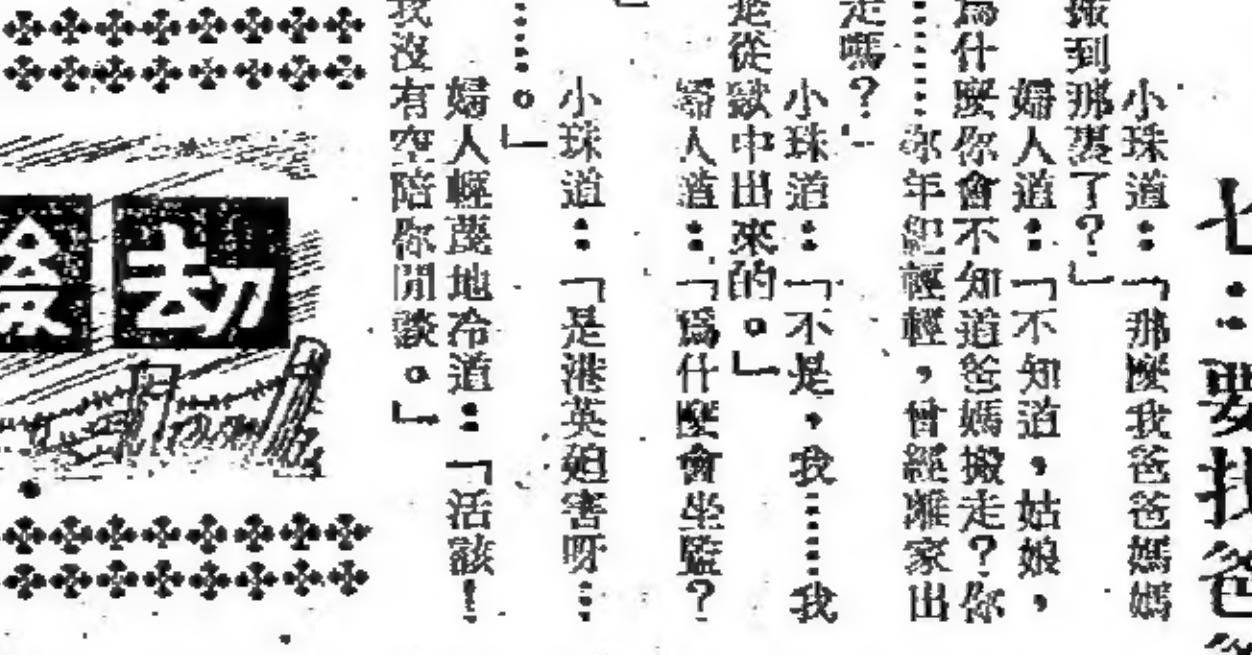 七：要找爸
小珠道：「那麼我爸爸媽媽
搬到那裏了？」
婦人道：「不知道，姑娘，
為什麼你會不知道爸媽搬走？你
……你年紀輕輕，曾經離家出
走嗎？」
小珠道：「不是，我……我
是從獄中出來的。」
婦人道：「爲什麼會坐監？
」
小珠道：「是港英廹害呀…
……。」
婦人輕蔑地冷道：「活該！
我沒有空陪你閒談。」
劫